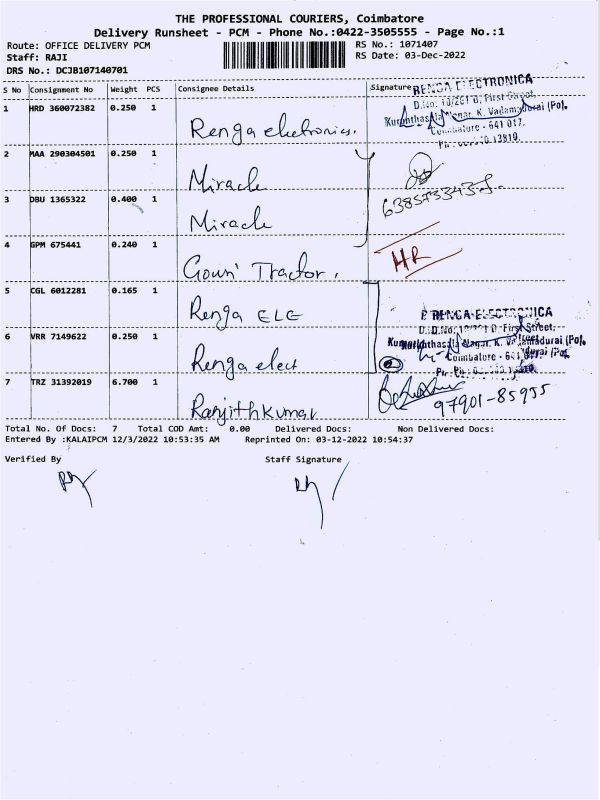 THE PROFESSIONAL COURIERS, Coimbatore
Delivery Runsheet - PCM - Phone No.:0422-3505555 - Page No.:1
Route: OFFICE DELIVERY PCM
RS No.: 1071407
Staff: RAJI
RS Date: 03-Dec-2022
DRS No.: DCJB107140701
S No Consignment No Weight PCS Consignee Details Signature
RENGA ELECTRONICA
1 HRD 360072382 0.250 1
First Street,
K. Vadamadurai (Po),
Coimbatore - 641 017.
Renga electronics.
2 MAA 290304501 0.250 1
Mirach
3 DBU 1365322 0.400 1
Mirach
4 GPM 675441 0.240 1
HR
Gowri Tractor.
5 CGL 6012281 0.165 1
Renga ELE
RENGA ELECTRONICA
First Street,
6 VRR 7149622 0.250 1
Nagar, K. Vadamadurai (Po),
Coimbatore - 641
Renga elect
7 TRZ 31392019 6.700 1
97901-85955
Ranjithkumar
Total No. Of Docs: 7 Total COD Amt: 0.00 Delivered Docs: Non Delivered Docs:
Entered By :KALAIPCM 12/3/2022 10:53:35 AM Reprinted On: 03-12-2022 10:54:37
Verified By Staff Signature